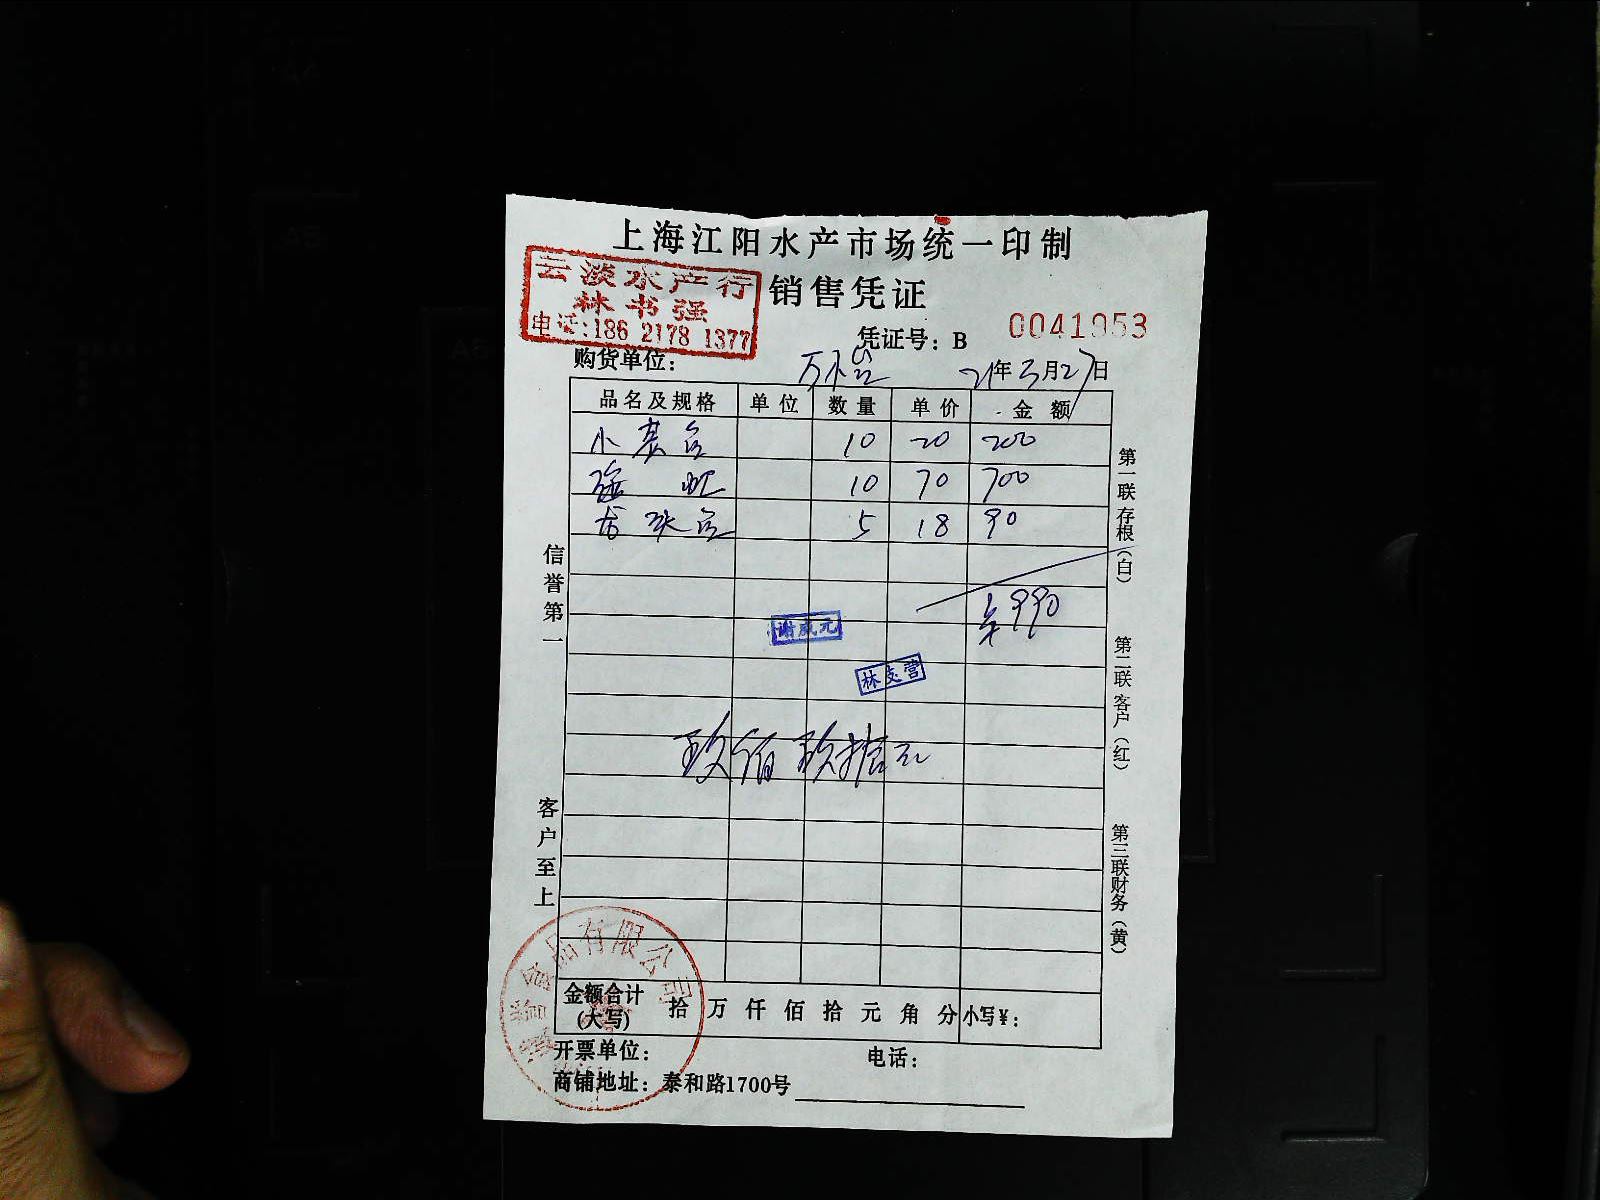 上海江阳水产市场统一印制
销售凭证
云淡水产行
林书强
电话:186 2178 1377
凭证号: B 0041953
购货单位: 21年3月27日
品名及规格 单位 数量 单价 金额
小 10 20 200
10 70 700
5 18 90
¥990
谢成元
林支营
玖佰玖拾元
信誉第一
客户至上
第一联存根(白)
第二联客户(红)
第三联财务(黄)
食品有限公司
金额合计(大写) 拾万仟佰拾元角分 小写¥:
开票单位: 电话:
商铺地址: 泰和路1700号